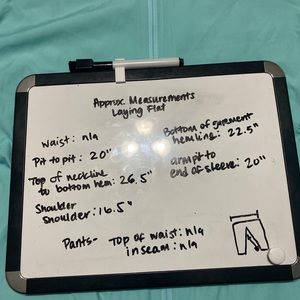 Approx. Measurements
Laying Flat
waist: n/a
Pit to pit: 20"
Top of neckline
to bottom hem: 26.5"
Shoulder
shoulder: 16.5"
Bottom of garment
hemline: 22.5"
armpit to
end of sleeve: 20"
Pants- Top of waist: n/a
inseam: n/a